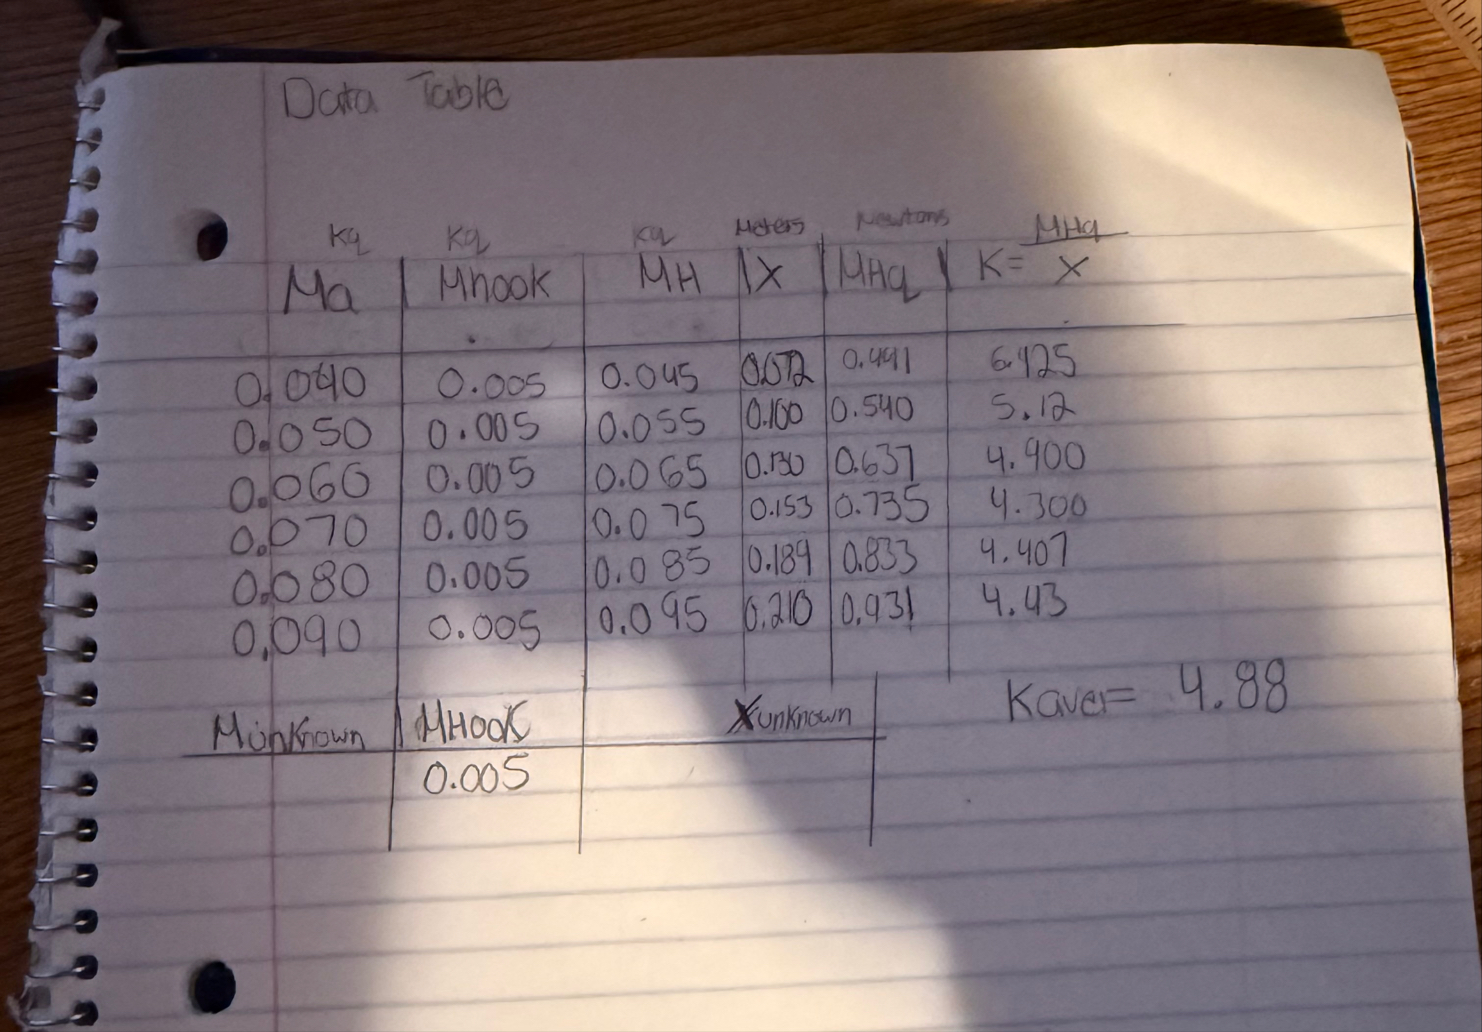 Data Table
Kg Kg Kg Meters Newtons MHg
Ma Mhook MH X MHg K= X
0.040 0.005 0.045 0.072 0.441 6.125
0.050 0.005 0.055 0.100 0.540 5.12
0.060 0.005 0.065 0.130 0.637 4.900
0.070 0.005 0.075 0.153 0.735 4.300
0.080 0.005 0.085 0.189 0.833 4.407
0.090 0.005 0.095 0.210 0.931 4.43
Kaver= 4.88
Munknown MHook Xunknown
0.005